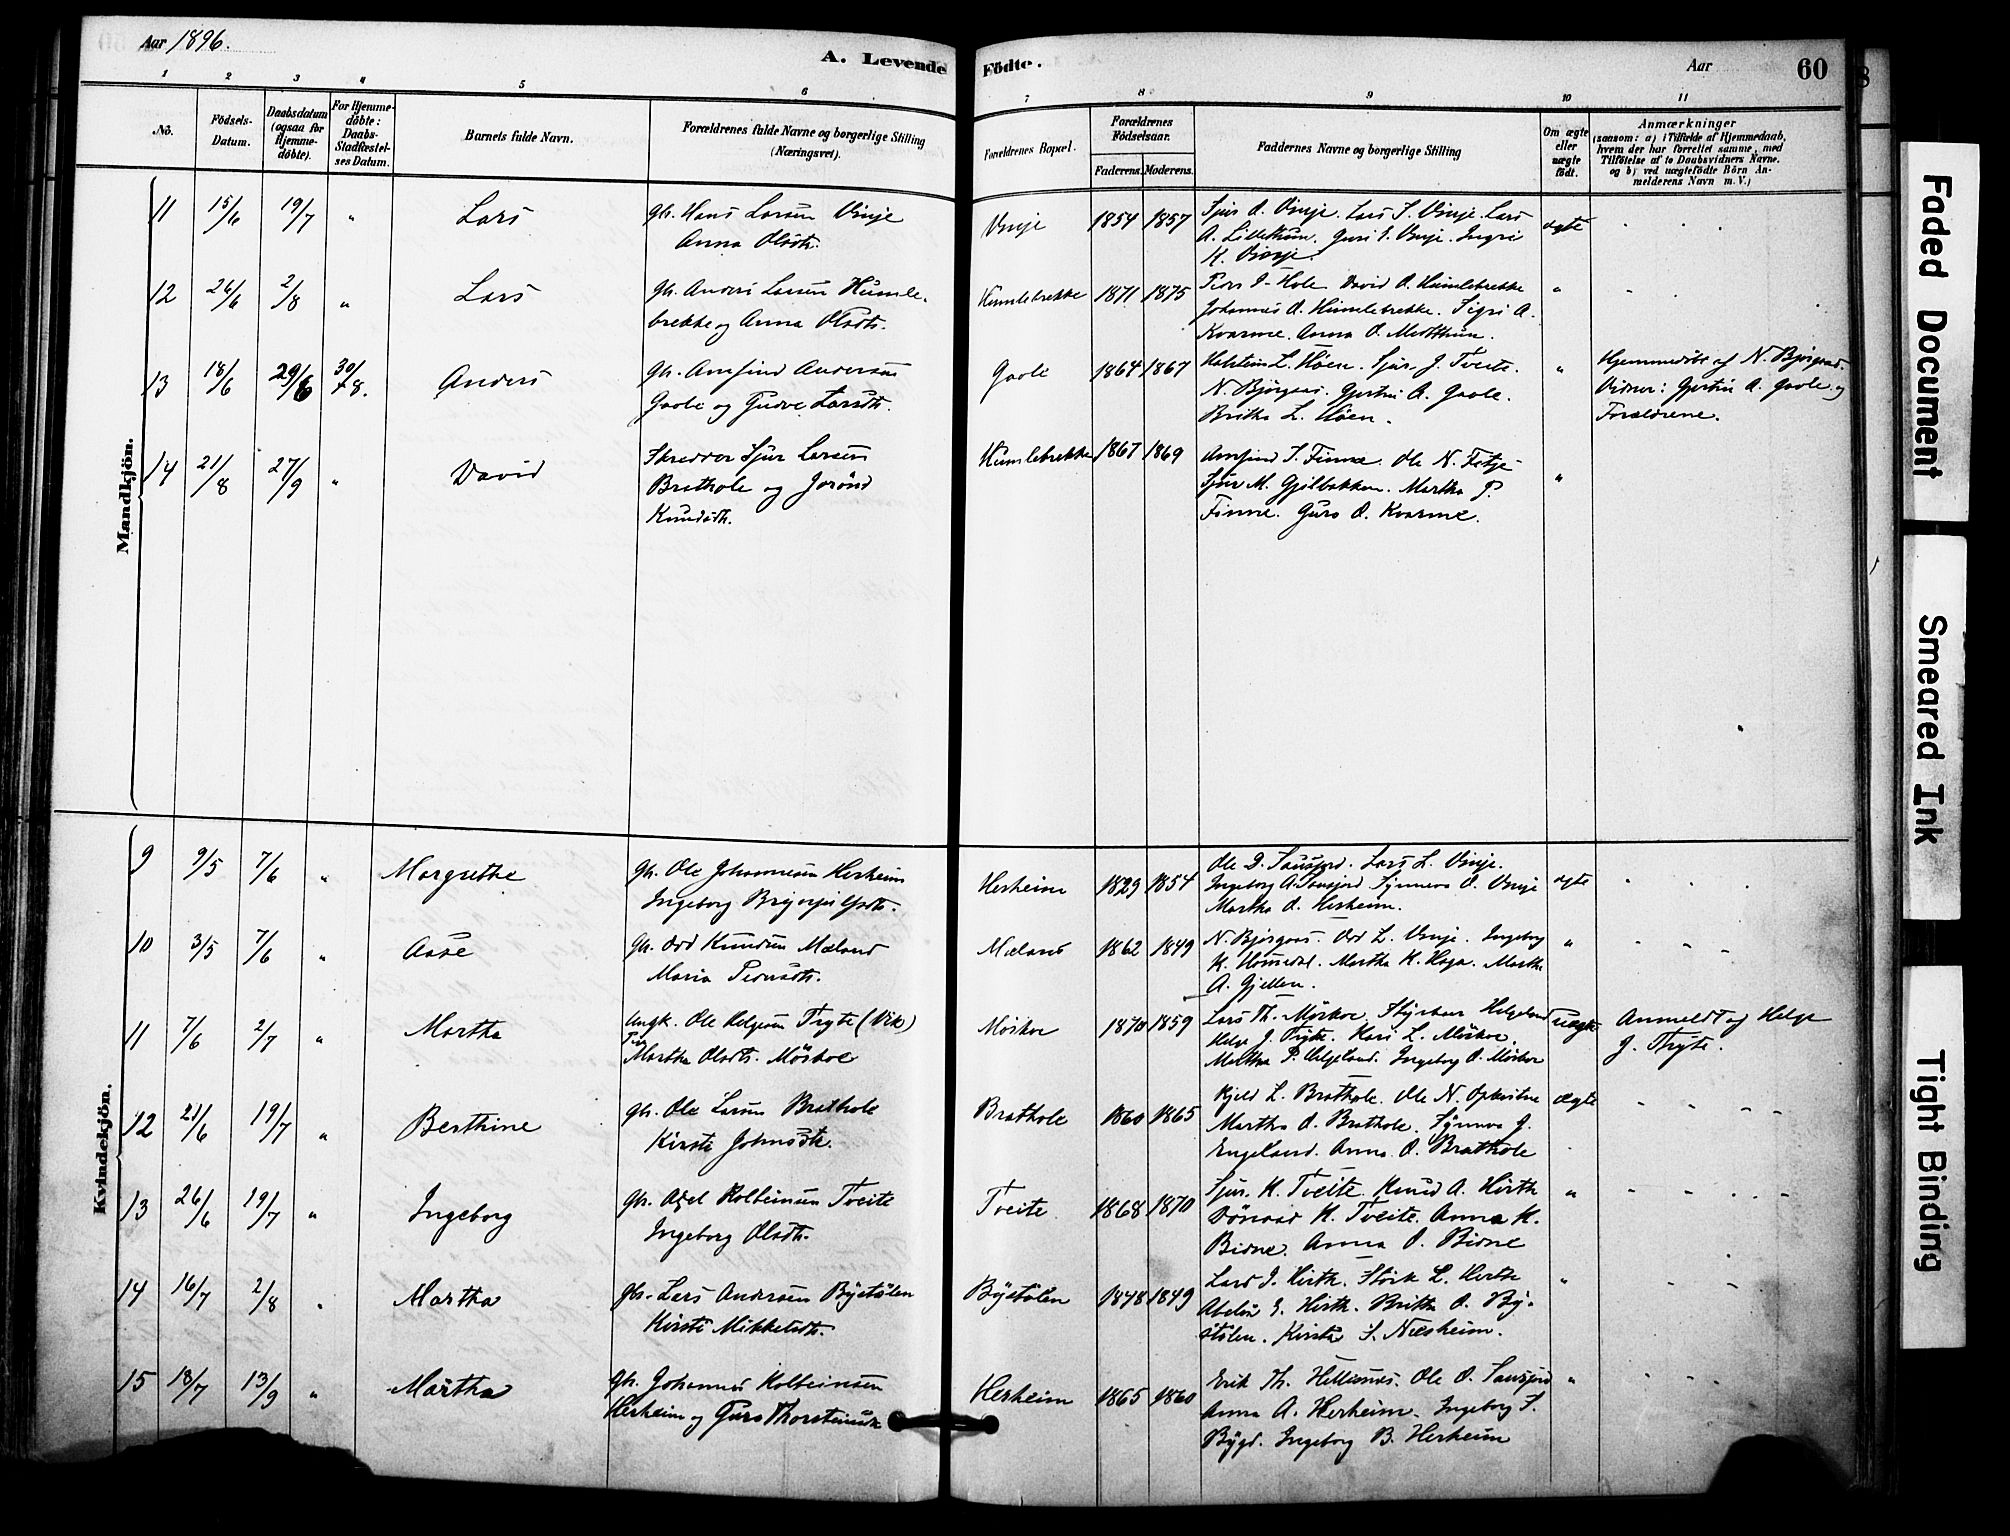 Aar 1896.
A. Levende
Födte.
Aar
60
1 2 3 4 5 6 7 8 9 10 11
No.
Födsels-Datum.
Daabsdatum (ogsaa for Hjemme-döbte).
For Hjemme-döbte: Daabs-Stadfæstel-ses Datum.
Barnets fulde Navn.
Forældrenes fulde Navne og borgerlige Stilling (Næringsvei).
Forældrenes Bopæl.
Forældrenes Födselsaar.
Faderens. Moderens.
Faddernes Navne og borgerlige Stilling
Om ægte eller uægte födt.
Anmærkninger
(saasom: a) i Tilfælde af Hjemmedaab,
hvem der har forrettet samme, med
Tilföielse af to Daabsvidners Navne.
og b) ved uægtefödte Börn An-
melderens Navn m. V.)
Mandkjön.
11 15/6 19/7 " Lars
gb. Hans Larsen Vinje
Anna Olsdtr.
Vinje 1854 1857
Sjur O. Vinje. Lars S. Vinje. Lars
A. Lillethun. Guri Vinje. Ingri
K. Vinje.
ægte
12 26/6 2/8 " Lars
gb. Anders Larsen Humle-
brekke og Anna Olsdtr.
Humlebrekke 1871 1875
Hole David O. Humlebrekke
Johannes O. Humlebrekke. Sigri A.
Kvarme. Anna O.
"
13 18/6 29/6 30/8. Anders
gb. Arnfind Andersen
Gaole og Gudve Larsdtr.
Gaole 1864 1867
Holstein L. Höen. Sjur J. Tveite.
N. Björgaas. Gjertru A. Gaole.
Britha L. Höen.
"
Hjemmedöbt af N. Björgaas.
Vidner: Gjertru A. Gaole og
Forældrene.
14 21/8 27/9 " David
Skredder Sjur Larsen
Brathole og Jorönd
Knudsdtr.
Humlebrekke 1867 1869
Arnfind S. Finne. Ole N.
Sjur M. Gjelbakken. Martha P.
Finne. Guro O. Kvarme.
"
Kvindekjön.
9 9/5 7/6 " Margrethe
gb. Ole Johannesen Herheim
Ingeborg
Herheim 1829 1854
Ole D. Sausjord. Lars L. Vinje.
Ingeborg A. Sausjord Synneva O. Vinje
Martha O. Herheim.
ægte
10 3/5 7/6 " Aase
gb. Odd Knudsen Mæland
Maria Pedersdtr.
Mæland 1862 1849
N. Björgaas. Odd L. Vinje. Ingeborg
K. Homedal. Martha K. Haga. Martha
A. Gjellen.
"
11 7/6 2/7 " Martha
Ungk. Ole Helgesen Tryte (Vik)
Pige Martha Olsdtr. Möskoe
Möskoe 1870 1859
Lars Th. Möskoe. Helgeland
Helge J. Tryte. Kari L. Möskoe.
Martha P. Helgeland. Ingeborg O. Möskoe
uægte
Anmeldt af Helge
J. Tryte.
12 21/6 19/7 " Berthine
gb. Ole Larsen Brathole
Kirsti Johnsdtr.
Brathole 1860 1865
Kjeld L. Brathole. Ole N. Opheim
Martha O. Brathole. Synneva J.
Engeland. Anna O. Brathole
ægte
13 26/6 19/7 " Ingeborg
gb. Kolbeinsen Tveite
Ingeborg Olsdtr.
Tveite 1868 1870
Sjur K. Tveite. Knud A. Hirth
K. Tveite. Anna K.
Bidne. Anna O. Bidne
"
14 16/7 2/8 " Martha
gb. Lars Andersen Bystölen
Kirsti Mikkelsdtr.
Bystölen 1848 1849
Lars I. Hirth. L. Hirth
E. Hirth. Britha O. By-
stölen. Kirsti S. Næsheim.
"
15 18/7 13/9 " Martha
gb. Johannes Kolbeinsen
Herheim og Guro Thorsteinsdtr
Herheim 1865 1860
Erik Th. Hellesnes. Ole O. Sausjord
Anna A. Herheim. Ingeborg S.
Bygd. Ingeborg B. Herheim
"
Faded Document
Smeared Ink
Tight Binding